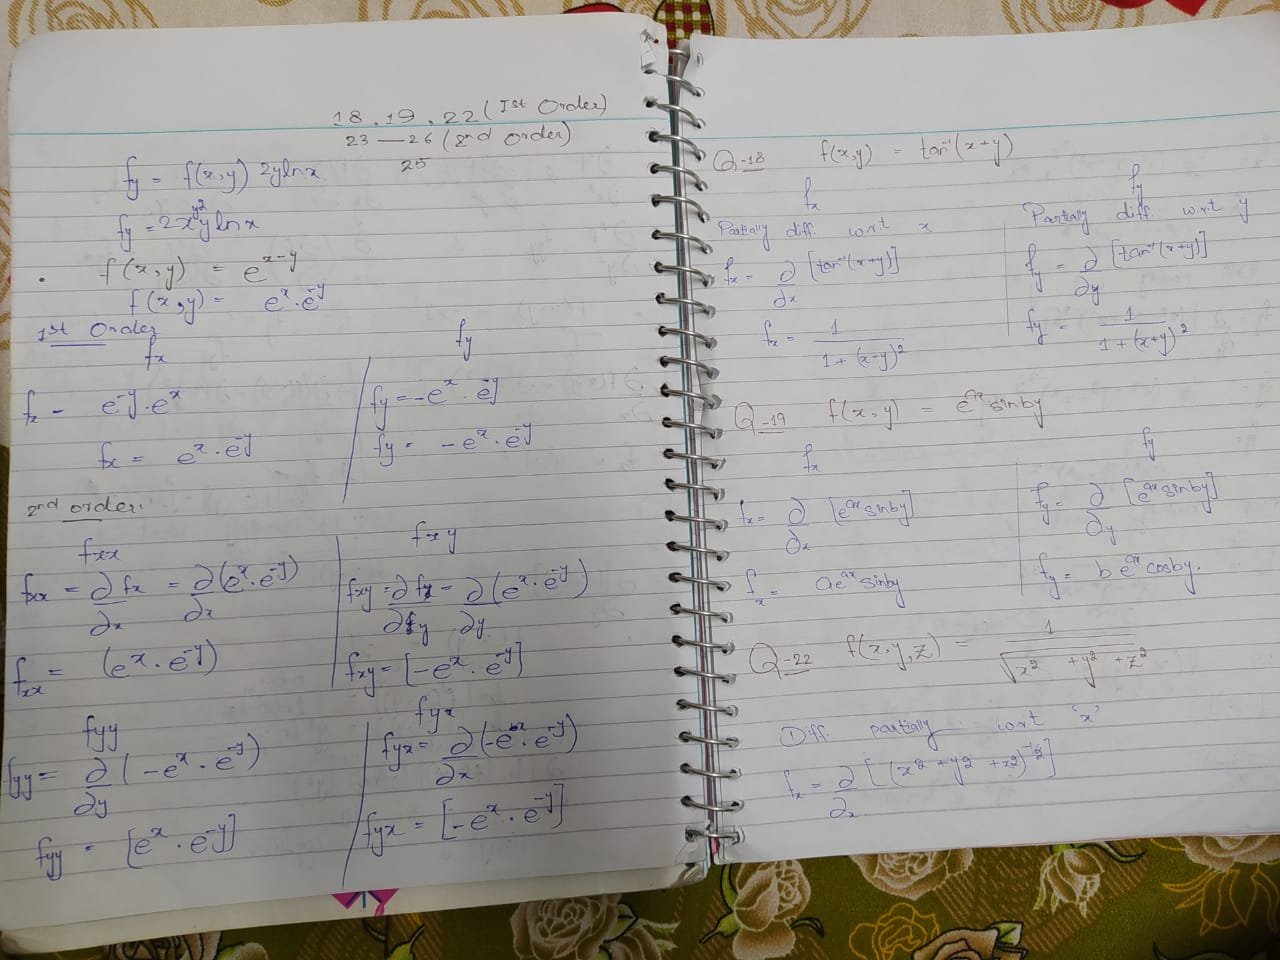 18, 19, 22 (Ist Order)
23 — 26 (2nd Order)
25
fy = f(x,y) 2ylnx
fy = 2x^y² ylnx
f(x,y) = e^x-y
f(x,y) = e^x . e^-y
1st Order
fx
fy
fx = e^-y . e^x
fy = -e^x . e^-y
fx = e^x . e^-y
fy = -e^x . e^-y
2nd order:
fxx
fxy
fxx = ∂/∂x fx = ∂/∂x (e^x . e^-y)
fxy = ∂/∂y fx = ∂/∂y (e^x . e^-y)
fxx = (e^x . e^-y)
fxy = [-e^x . e^-y]
fyy
fyx
fyy = ∂/∂y (-e^x . e^-y)
fyx = ∂/∂x (-e^x . e^-y)
fyy = [e^x . e^-y]
fyx = [-e^x . e^-y]
Q-18 f(x,y) = tan⁻¹(x+y)
fx
fy
Partially diff. w.r.t x
Partially diff w.r.t y
fx = ∂/∂x [tan⁻¹(x+y)]
fy = ∂/∂y [tan⁻¹(x+y)]
fx = 1/1+(x+y)²
fy = 1/1+(x+y)²
Q-19 f(x,y) = e^ax sinby
fx
fy
fx = ∂/∂x [e^ax sinby]
fy = ∂/∂y [e^ax sinby]
fx = ae^ax sinby
fy = be^ax cosby.
Q-22 f(x,y,z) = 1/√x² +y² +z²
Diff. partially w.r.t 'x'
fx = ∂/∂x [(x² +y² +z²)^-1/2]